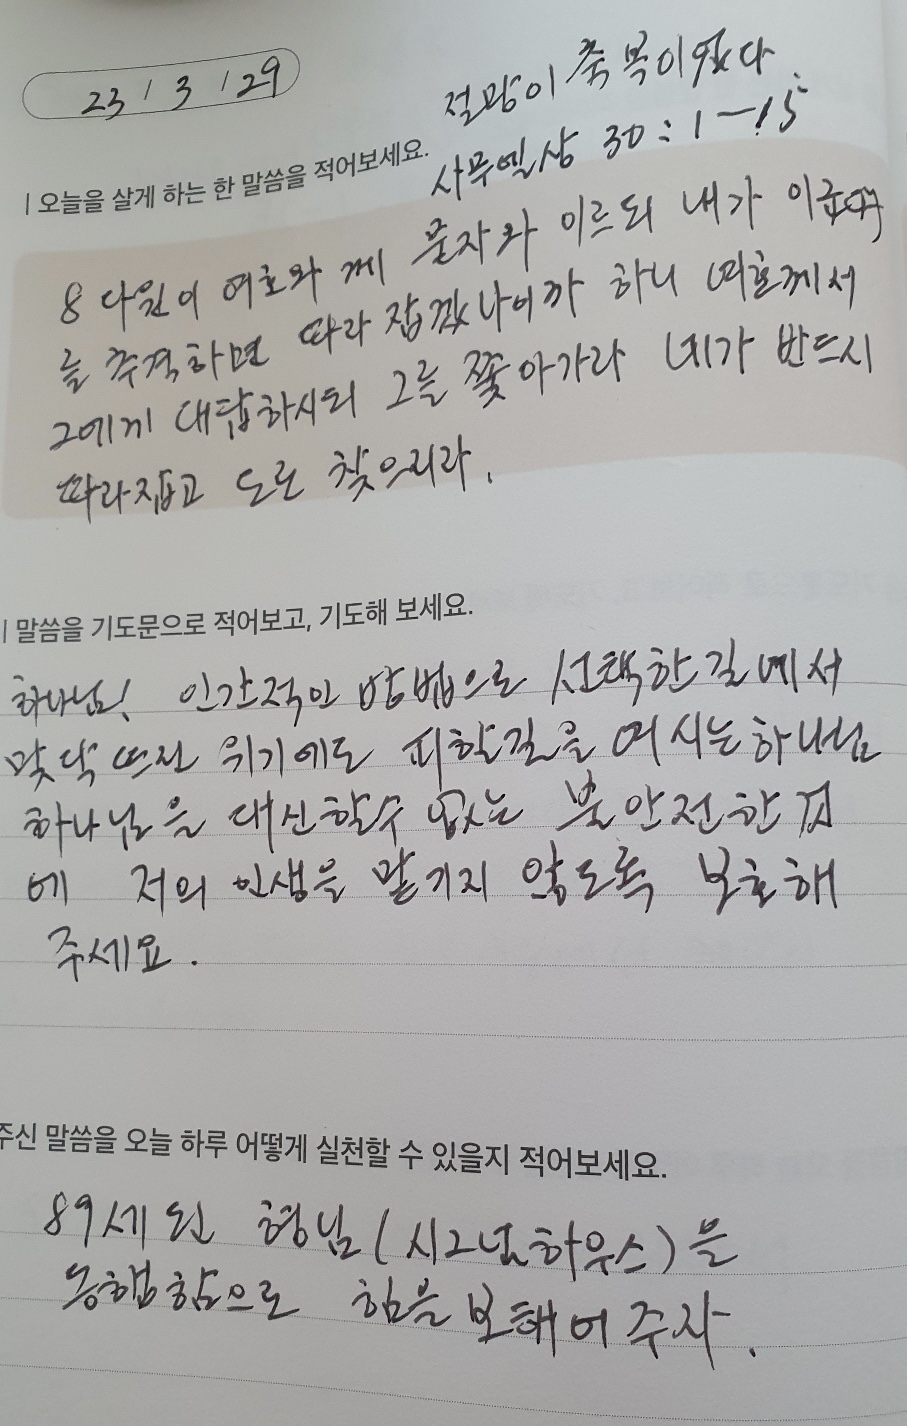 23 / 3 / 29
절망이 축복이 었다
사무엘상 30 : 1 - 15
| 오늘을 살게 하는 한 말씀을 적어보세요.
8 다윗이 여호와 께 묻자와 이르되 내가 이군대
를 추격하면 따라 잡겠나이까 하니 여호께서
그에게 대답하시되 그를 쫓아가라 네가 반드시
따라잡고 도로 찾으리라.
| 말씀을 기도문으로 적어보고, 기도해 보세요.
하나님! 인간적인 방법으로 선택한길에서
맞닥 뜨린 위기에도 피할길을 여시는하나님
하나님을 대신할수 없는 불안전한 것
에 저의 인생을 맡기지 않도록 보호해
주세요.
주신 말씀을 오늘 하루 어떻게 실천할 수 있을지 적어보세요.
89세 된 형님 (시그넘하우스)을
동행함으로 힘을 보태어 주자.